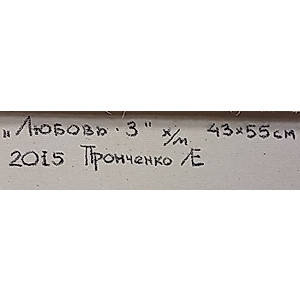 „Любовь·3" х/м 43×55 см
2015 Пронченко ЛЕ